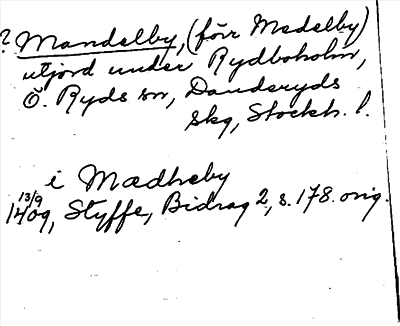 ? Mandelby, (förr Medelby)
utjord under Rydboholm,
Ö. Ryds sn, Danderyds
skg, Stockh. l.
i Mædheby
13/9
1409, Styffe, Bidrag 2, s. 178. orig.